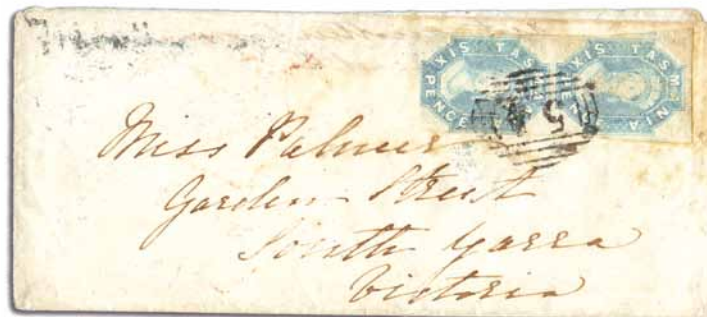 SIX PENCE TASMANIA SIX PENCE TASMANIA
54
Miss Palmer
Garden Street
South Yarra
Victoria